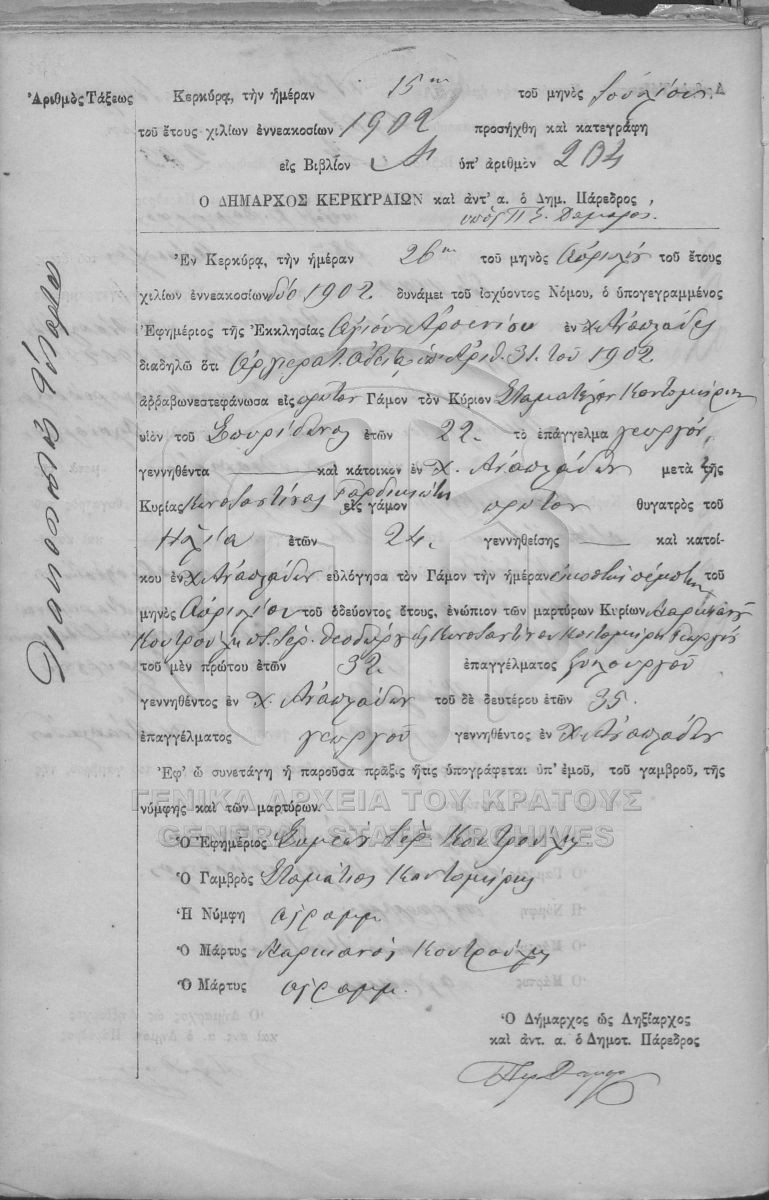 Ἀριθμὸς Τάξεως
Κερκύρᾳ, τὴν ἡμέραν 15ην τοῦ μηνὸς Ἰουνίου
τοῦ ἔτους χιλίων ἐννεακοσίων 1902 προσήχθη καὶ κατεγράφη
εἰς Βιβλίον Α ὑπ' ἀριθμὸν 204
Ο ΔΗΜΑΡΧΟΣ ΚΕΡΚΥΡΑΙΩΝ καὶ ἀντ' α. ὁ Δημ. Πάρεδρος,
Ἐν Κερκύρᾳ, τὴν ἡμέραν 26ην τοῦ μηνὸς Ἀπριλίου τοῦ ἔτους
χιλίων ἐννεακοσίων δύο 1902 δυνάμει τοῦ ἰσχύοντος Νόμου, ὁ ὑπογεγραμμένος
Ἐφημέριος τῆς Ἐκκλησίας Ἁγίου Ἀρσενίου ἐν χ. Ἀναπλάδες
διαδηλῶ ὅτι Ἀρχιερατ. ἀδείᾳ ὑπ' Ἀριθ. 31. τοῦ 1902
ἀρραβωνεστεφάνωσα εἰς πρῶτον Γάμον τὸν Κύριον Σταματέλον Κοντομάρην
υἱὸν τοῦ Σπυρίδωνος ἐτῶν 22. τὸ ἐπάγγελμα γεωργόν,
γεννηθέντα καὶ κάτοικον ἐν χ. Ἀναπλάδων μετὰ τῆς
Κυρίας Κωνσταντίνας Γαρδικιώτη εἰς γάμον πρῶτον θυγατρὸς τοῦ
Ἠλία ἐτῶν 24. γεννηθείσης καὶ κατοί-
κου ἐν χ. Ἀναπλάδων εὐλόγησα τὸν Γάμον τὴν ἡμέραν εἰκοστὴν πέμπτην τοῦ
μηνὸς Ἀπριλίου τοῦ ὁδεύοντος ἔτους, ἐνώπιον τῶν μαρτύρων Κυρίων Μαρκιανοῦ
Κοντρούλη π. Ἱερ. Θεοδώρου, Κωνσταντίνου Κοντομάρη Γεωργίου
τοῦ μὲν πρώτου ἐτῶν 32 ἐπαγγέλματος ξυλουργοῦ
γεννηθέντος ἐν χ. Ἀναπλάδων τοῦ δὲ δευτέρου ἐτῶν 35.
ἐπαγγέλματος γεωργοῦ γεννηθέντος ἐν χ. Ἀναπλάδων
Ἐφ' ᾧ συνετάγη ἡ παροῦσα πρᾶξις ἥτις ὑπογράφεται ὑπ' ἐμοῦ, τοῦ γαμβροῦ, τῆς
νύμφης καὶ τῶν μαρτύρων.
ΓΕΝΙΚΑ ΑΡΧΕΙΑ ΤΟΥ ΚΡΑΤΟΥΣ
GENERAL STATE ARCHIVES
Ὁ Ἐφημέριος Συμεὼν Ἱερ. Κοντρούλης
Ὁ Γαμβρὸς Σταμάτιος Κοντομάρης
Ἡ Νύμφη ἀγραμμ.
Ὁ Μάρτυς Μαρκιανὸς Κοντρούλης
Ὁ Μάρτυς ἀγραμμ.
Ὁ Δήμαρχος ὡς Ληξίαρχος
καὶ ἀντ. α. ὁ Δημοτ. Πάρεδρος